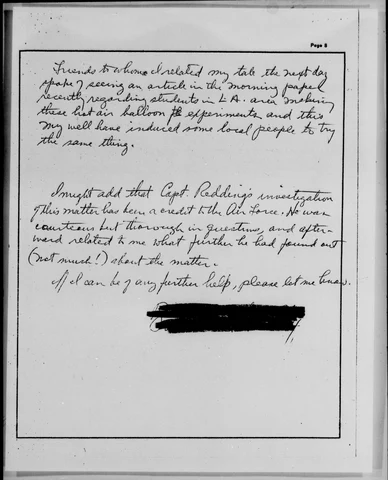 Page 5
Friends to whom I related my tale the next day
spoke of seeing an article in the morning paper
recently regarding students in L.A. area making
these hot air balloon experiments and this
may well have induced some local people to try
the same thing.
I might add that Capt. Redding's investigation
of this matter has been a credit to the Air Force. He was
courteous but thorough in questions, and after-
ward related to me what further he had found out
(not much!) about the matter.
If I can be of any further help, please let me know.